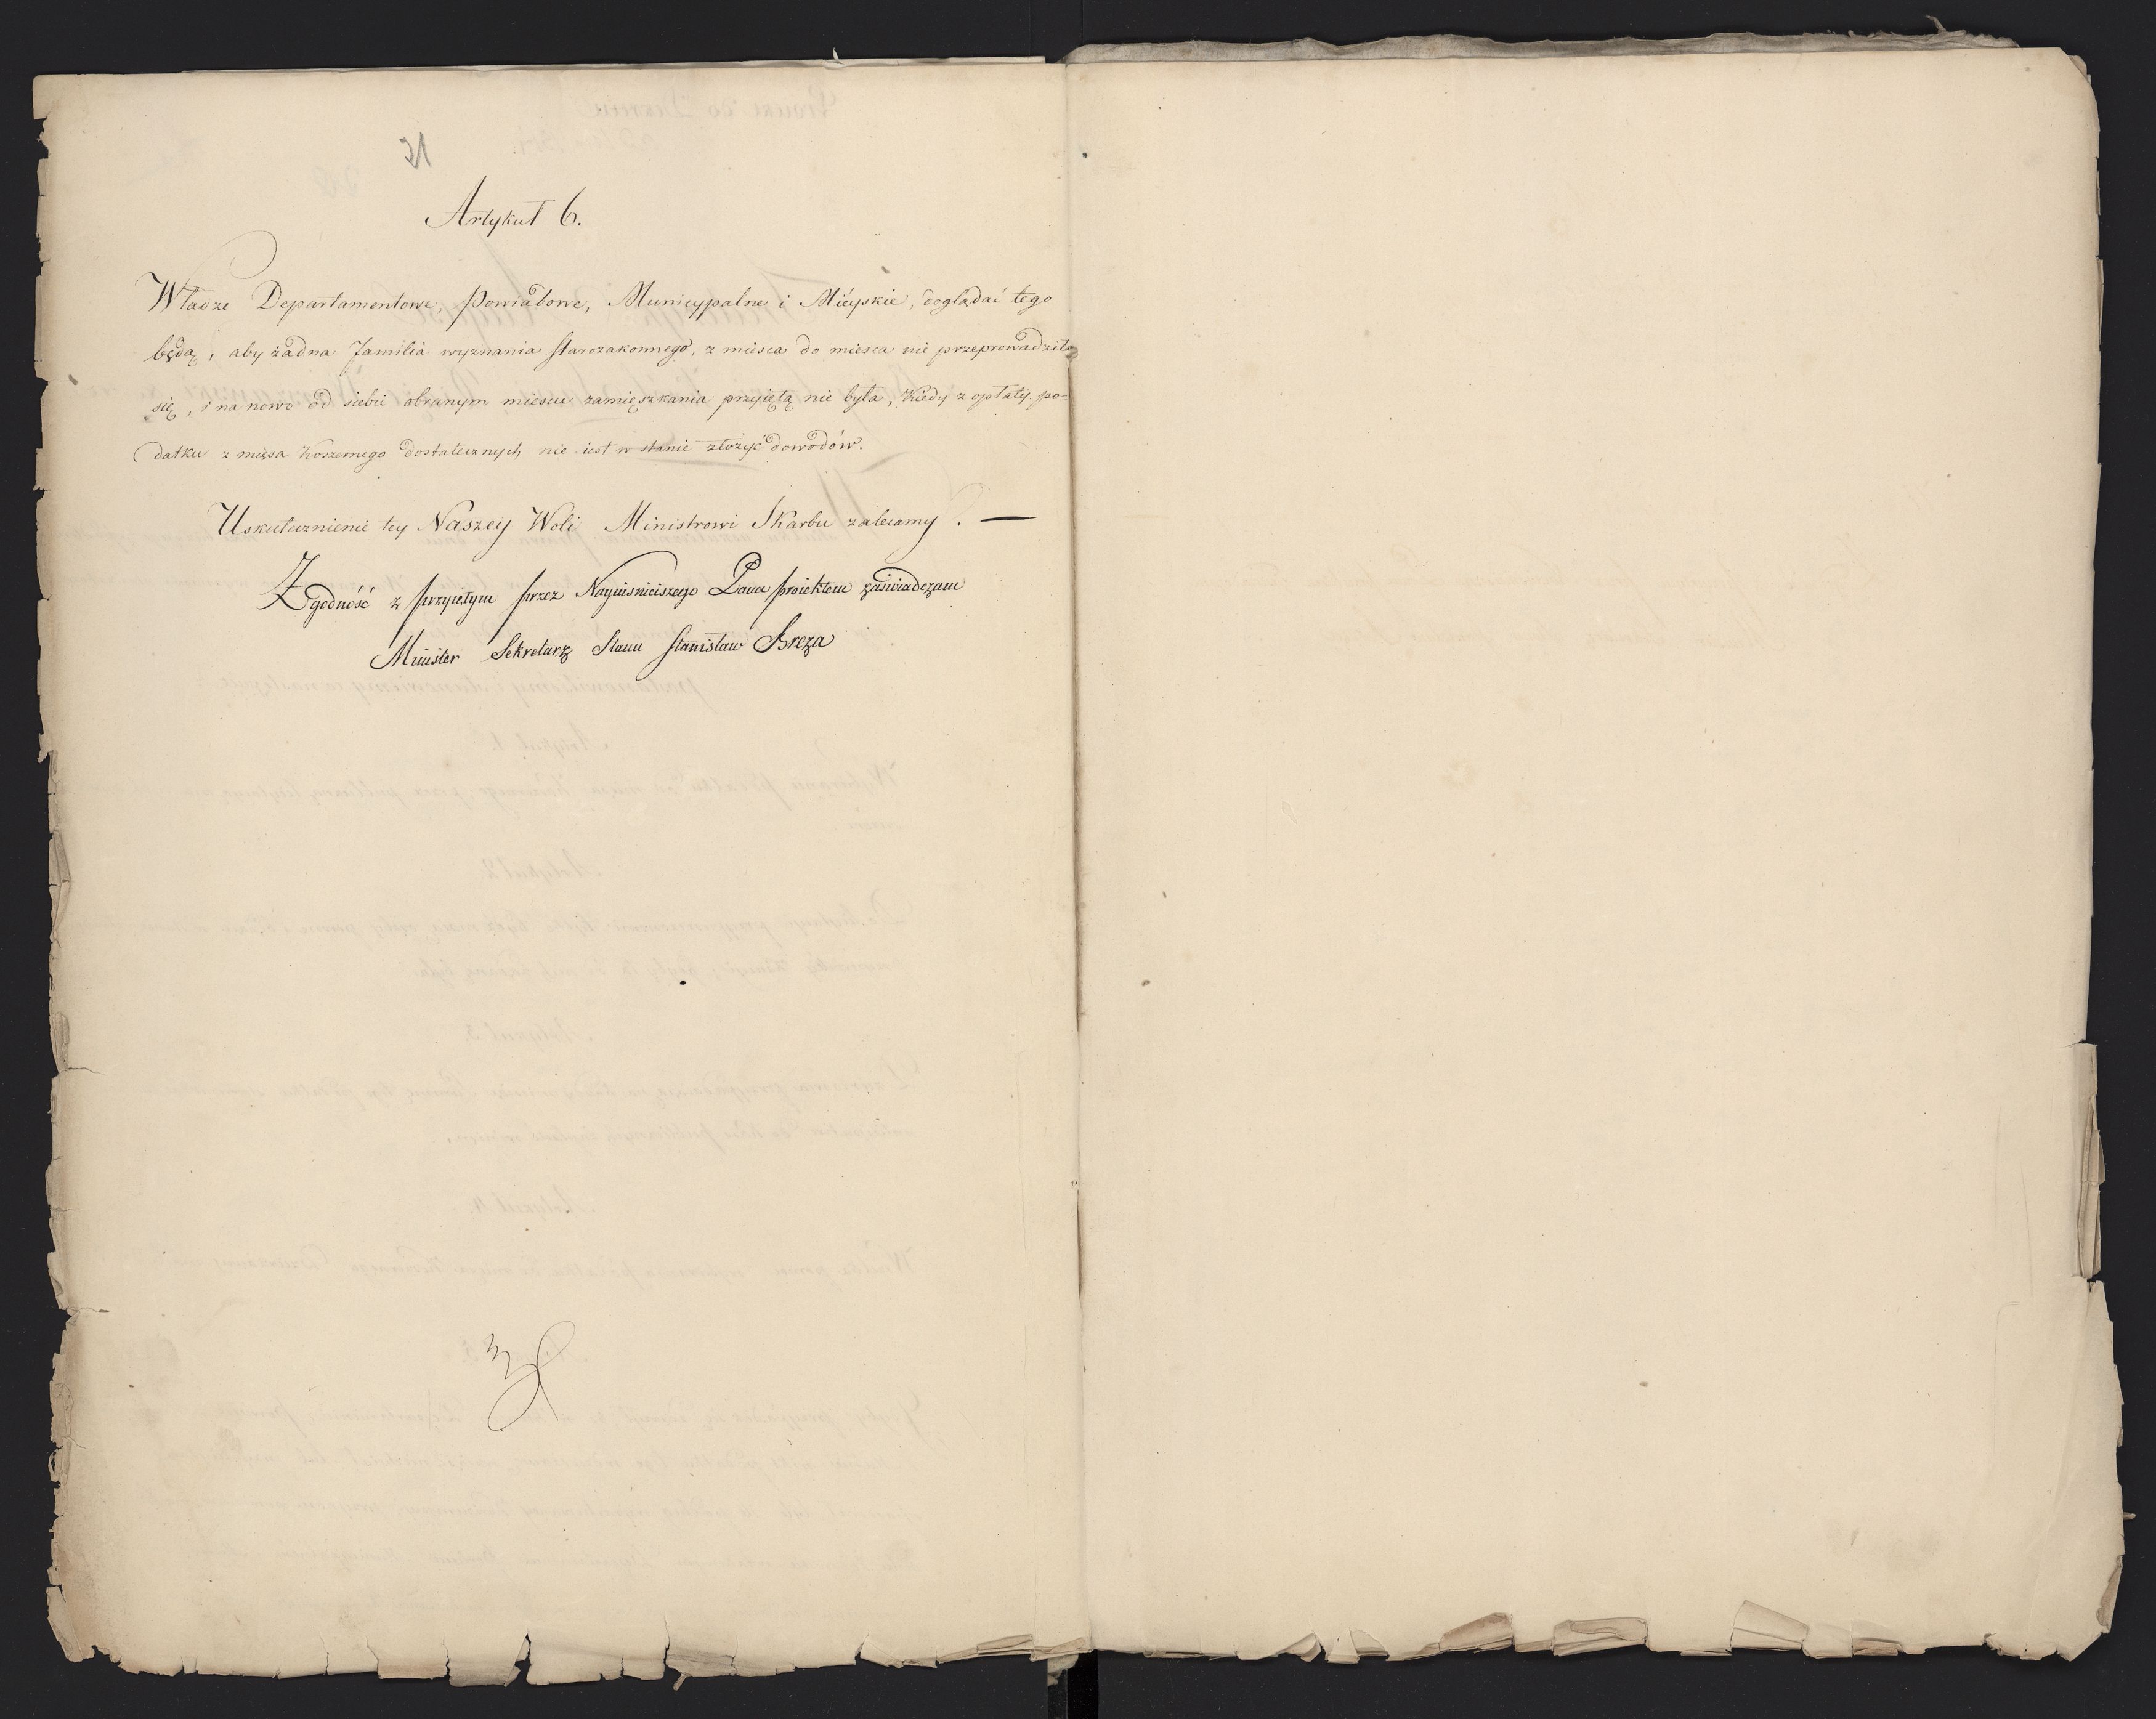 21
Artykuł 6.
Władze Departamentowe, Powiatowe, Municypalne i Mieyskie, doglądać tego
będą, aby żadna Familia wyznania starozakonnego, z mieysca do mieysca nie przeprowadziła
się, i na nowo od siebie obranym mieyscu zamięszkania przyiętą nie była, kiedy z opłaty po=
datku z mięsa koszernego dostatecznych nie iest w stanie złożyć dowodów.
Uskutecznienie tey Naszey Woli Ministrowi Skarbu zalecamy. —
Zgodność z przyiętym przez Nayiaśnieiszego Pana proiektem zaświadczam
Minister Sekretarz Stanu Stanisław Breza